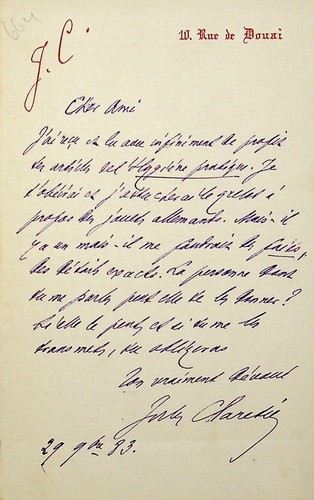 664
J. C.
10. Rue de Douai
Cher Ami
J'ai reçu et lu avec infiniment de profit
tes articles de l'Hygiène pratique. Je
t'obéirai et j'attacherai le grelot à
propos des jouets allemands. Mais - il
y a un mais - il me faudrait des faits,
des détails exacts. La personne dont
tu me parles peut elle me les donner ?
Si elle le peut, et si tu me les
transmets, tu obligeras
Ton vraiment dévoué
Jules Claretie
29 9bre 83.